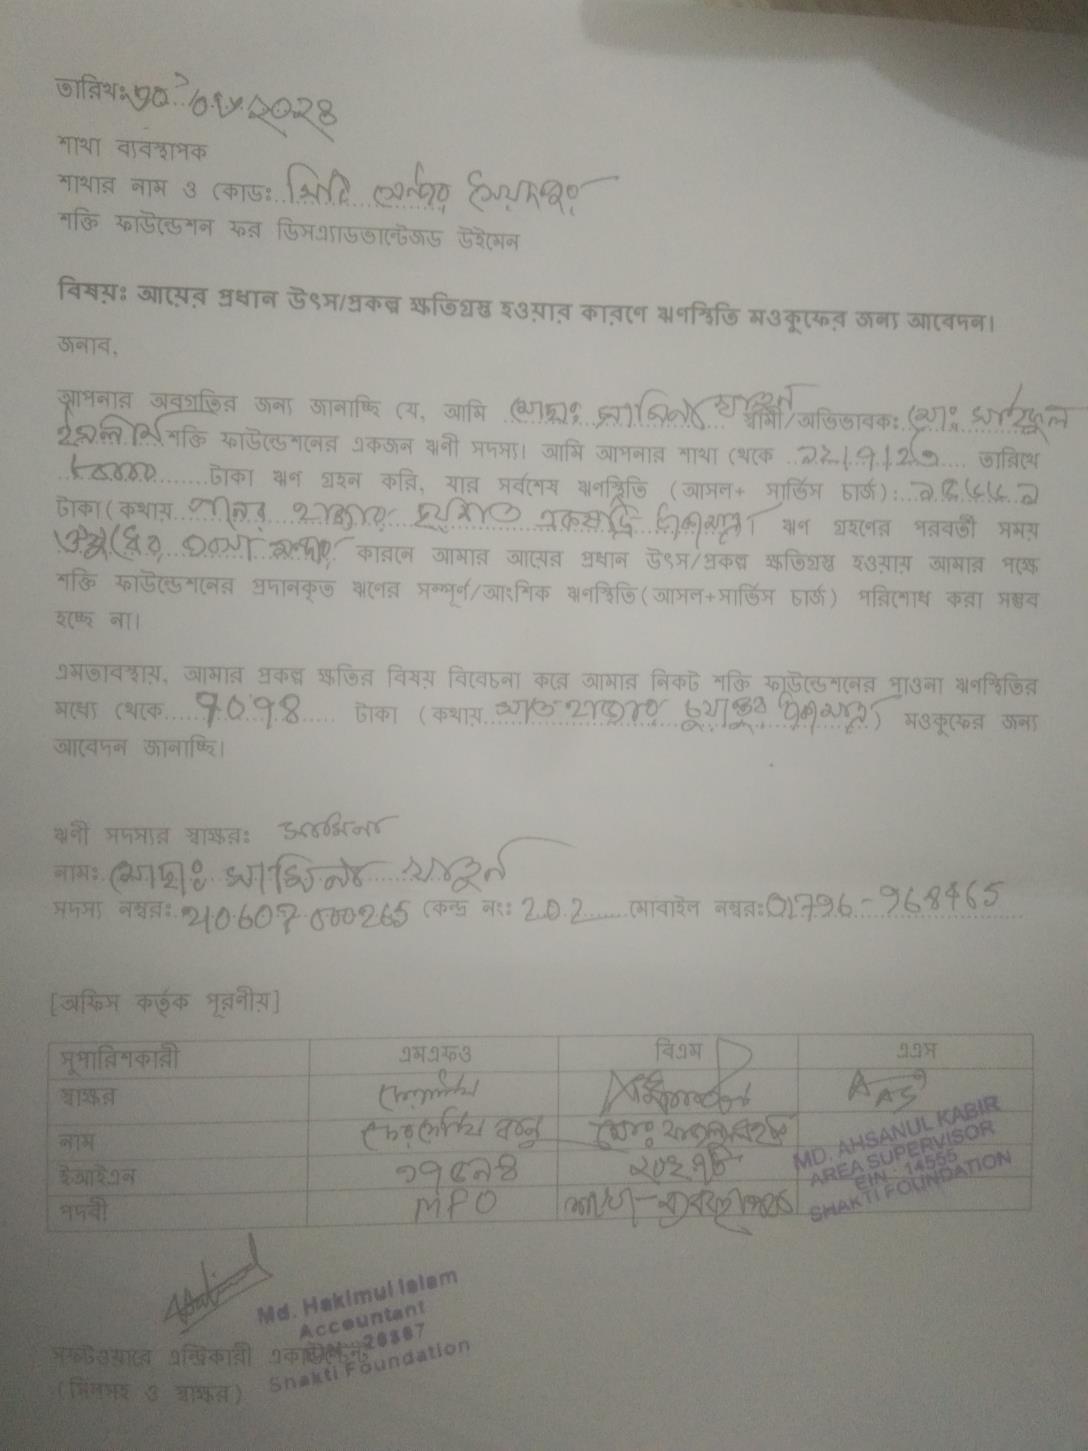 তারিখঃ ২০২৪
শাখা ব্যবস্থাপক
শাখার নাম ও কোডঃ সিটি সেন্টার সৈয়দপুর
শক্তি ফাউন্ডেশন ফর ডিসএ্যাডভান্টেজড উইমেন
বিষয়ঃ আয়ের প্রধান উৎস/প্রকল্প ক্ষতিগ্রস্ত হওয়ার কারণে ঋণস্থিতি মওকুফের জন্য আবেদন।
জনাব,
আপনার অবগতির জন্য জানাচ্ছি যে, আমি মোছাঃ খাতুন স্বামী/অভিভাবক: মোঃ সাইফুল
ইসলাম শক্তি ফাউন্ডেশনের একজন ঋনী সদস্য। আমি আপনার শাখা থেকে তারিখে
টাকা ঋণ গ্রহন করি, যার সর্বশেষ ঋণস্থিতি (আসল+ সার্ভিস চার্জ):
টাকা(কথায় পনের হাজার একষট্টি টাকামাত্র। ঋণ গ্রহণের পরবর্তী সময়
কারনে আমার আয়ের প্রধান উৎস/প্রকল্প ক্ষতিগ্রস্ত হওয়ায় আমার পক্ষে
শক্তি ফাউন্ডেশনের প্রদানকৃত ঋণের সম্পূর্ণ/আংশিক ঋণস্থিতি(আসল+সার্ভিস চার্জ) পরিশোধ করা সম্ভব
হচ্ছে না।
এমতাবস্থায়, আমার প্রকল্প ক্ষতির বিষয় বিবেচনা করে আমার নিকট শক্তি ফাউন্ডেশনের পাওনা ঋণস্থিতির
মধ্যে থেকে ৭০৭৪ টাকা (কথায় সাত হাজার চুয়াত্তর টাকামাত্র) মওকুফের জন্য
আবেদন জানাচ্ছি।
ঋনী সদস্যর স্বাক্ষরঃ
নামঃ মোছাঃ খাতুন
সদস্য নম্বরঃ 210607000265 কেন্দ্র নং: 202 মোবাইল নম্বর:01796-968465
[অফিস কর্তৃক পূরনীয়]
সুপারিশকারী এমএফও বিএম এএস
স্বাক্ষর
নাম মোঃ
ইআইএন
পদবী MFO শাখা-ব্যবস্থাপক
MD. AHSANUL KABIR
AREA SUPERVISOR
EIN : 14555
SHAKTI FOUNDATION
Md. Hakimul Islam
Accountant
Shakti Foundation
সফটওয়ারে এন্ট্রিকারী
(সিলসহ ও স্বাক্ষর)